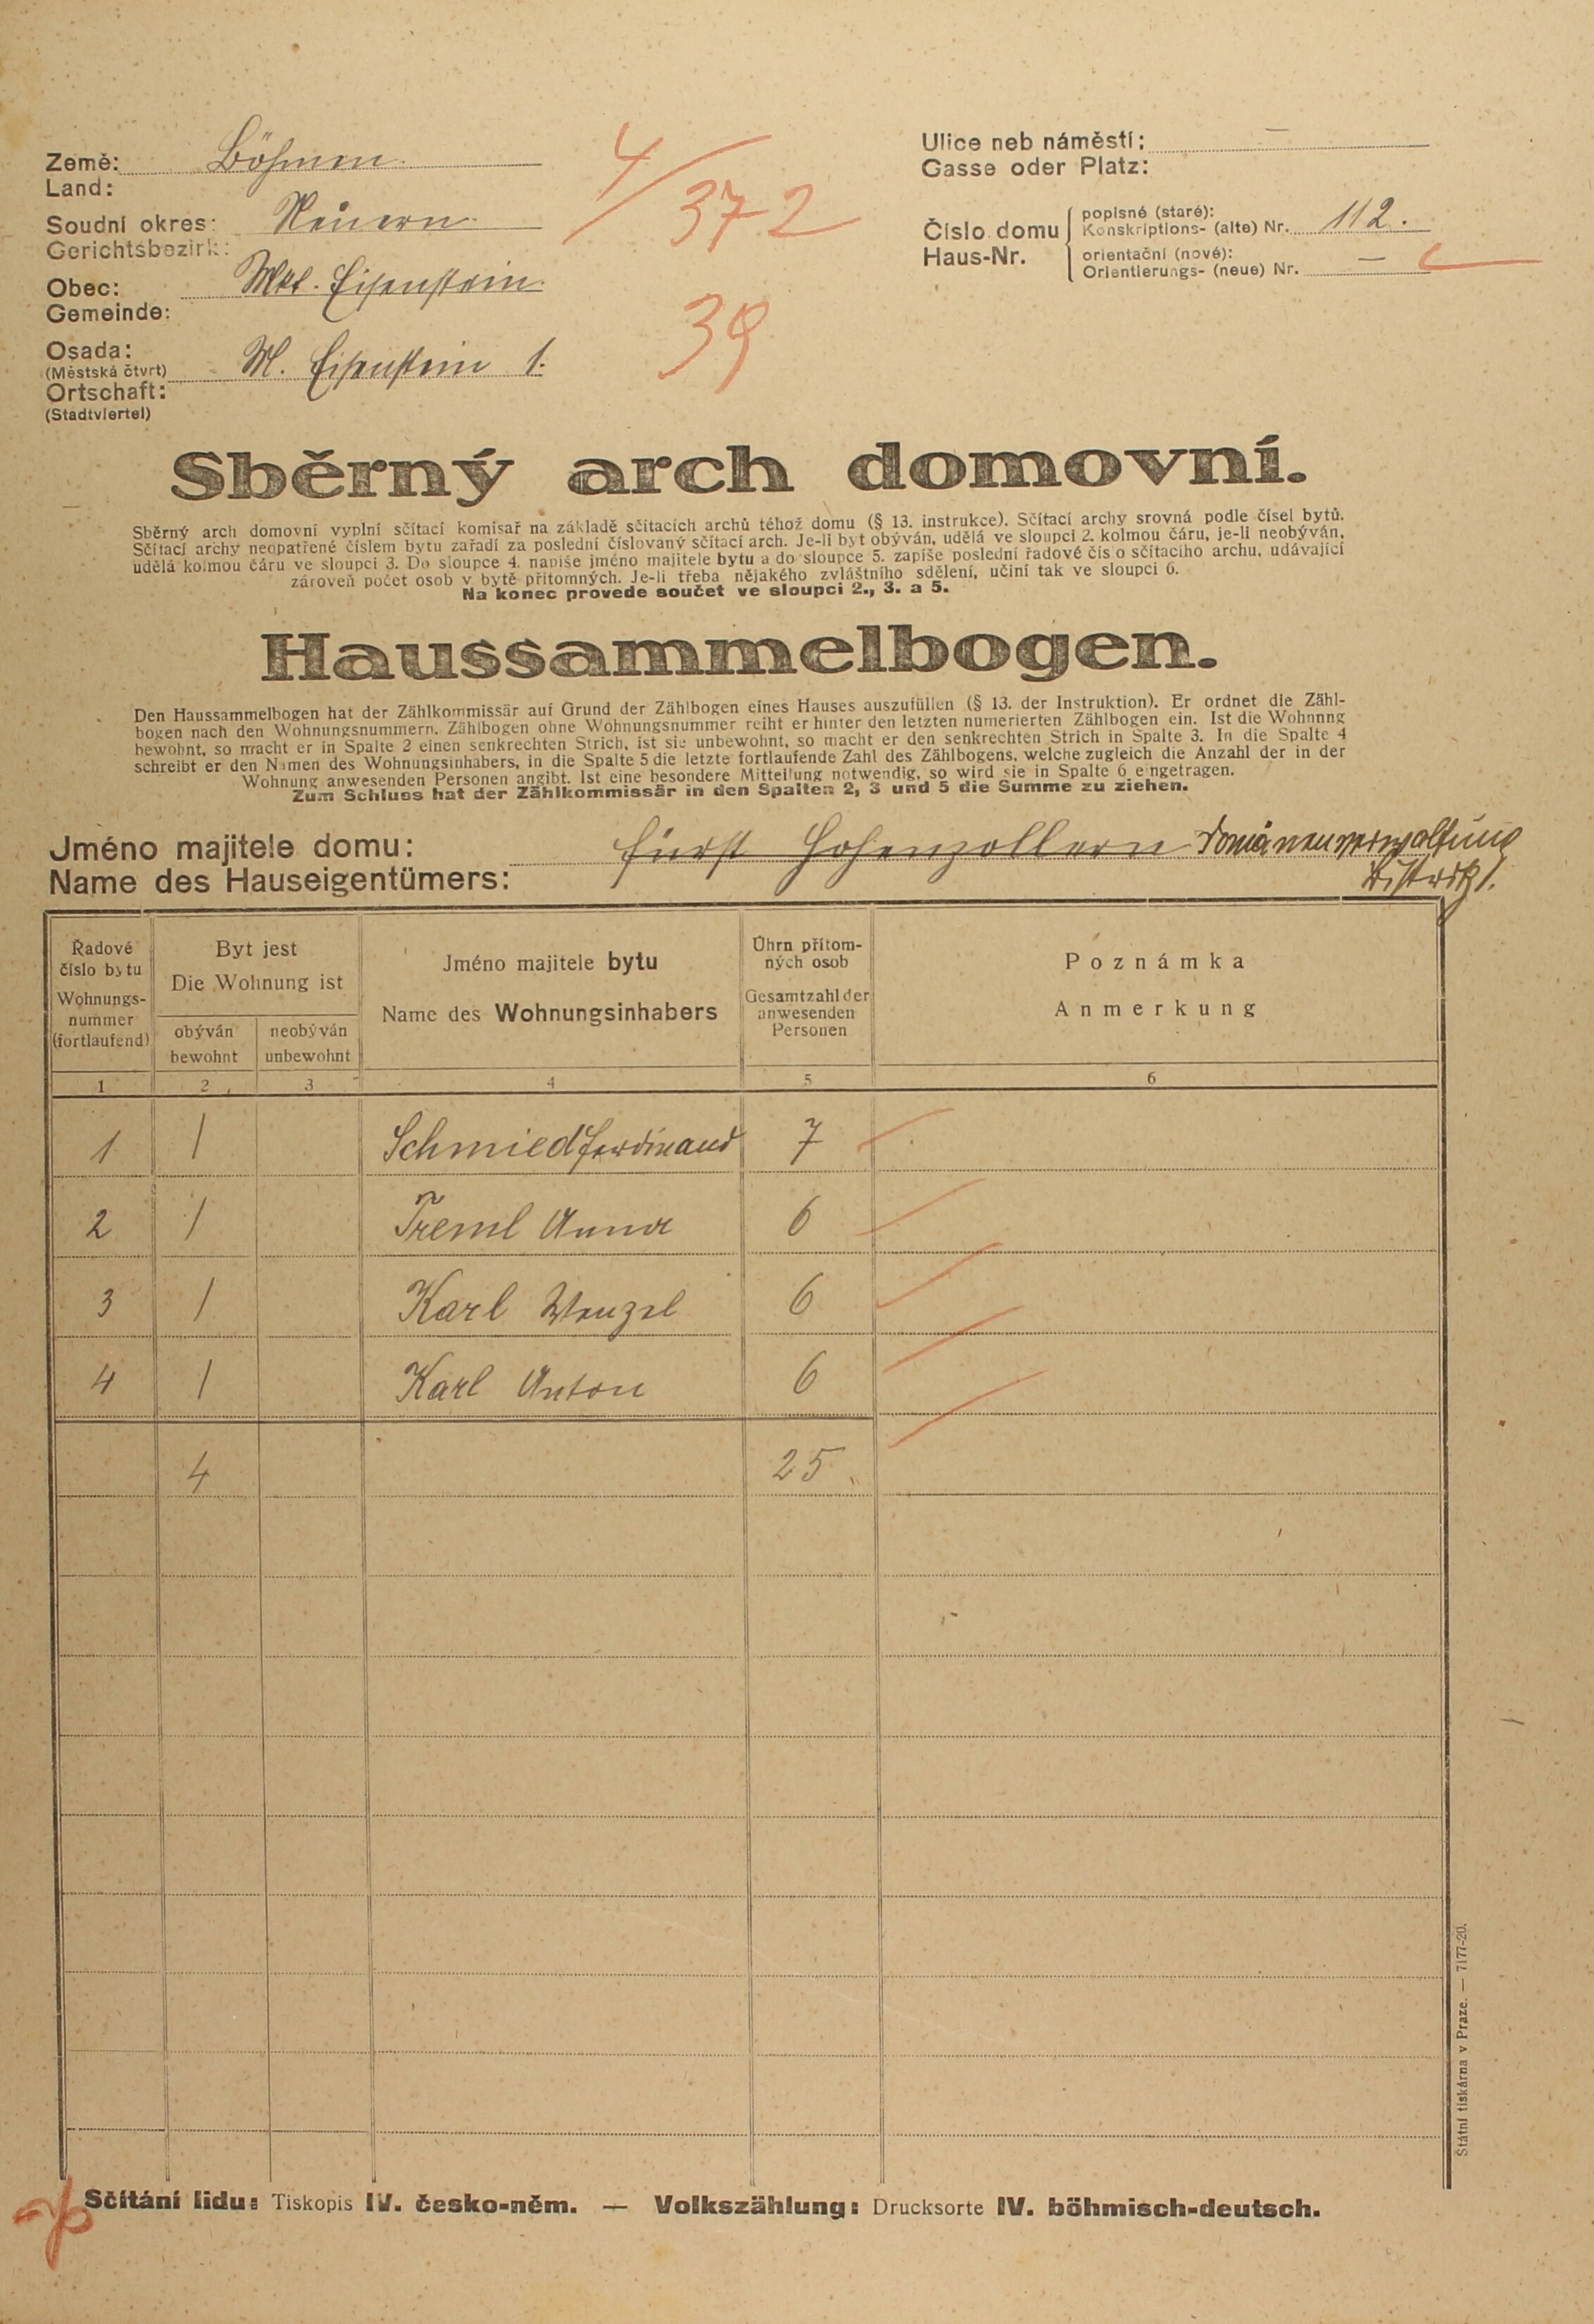 Země: Böhmen
Land:
Soudní okres: Neuern
Gerichtsbezirk:
Obec: Mkt. Eisenstein
Gemeinde:
Osada:
(Městská čtvrt) M. Eisenstein 1.
Ortschaft:
(Stadtviertel)
4/372
39
Ulice neb náměstí: —
Gasse oder Platz:
Číslo domu popisné (staré):
Konskriptions- (alte) Nr. 112.
Haus-Nr. orientační (nové):
Orientierungs- (neue) Nr. —
Sběrný arch domovní.
Sběrný arch domovní vyplní sčítací komisař na základě sčítacích archů téhož domu (§ 13. instrukce). Sčítací archy srovná podle čísel bytů.
Sčítací archy neopatřené číslem bytu zařadí za poslední číslovaný sčítací arch. Je-li byt obýván, udělá ve sloupci 2. kolmou čáru, je-li neobýván,
udělá kolmou čáru ve sloupci 3. Do sloupce 4. napíše jméno majitele bytu a do sloupce 5. zapíše poslední řadové čís o sčítacího archu, udávající
zároveň počet osob v bytě přítomných. Je-li třeba nějakého zvláštního sdělení, učiní tak ve sloupci 6.
Na konec provede součet ve sloupci 2., 3. a 5.
Haussammelbogen.
Den Haussammelbogen hat der Zählkommissär auf Grund der Zählbogen eines Hauses auszufüllen (§ 13. der Instruktion). Er ordnet die Zähl-
bogen nach den Wohnungsnummern. Zählbogen ohne Wohnungsnummer reiht er hinter den letzten numerierten Zählbogen ein. Ist die Wohnnng
bewohnt, so macht er in Spalte 2 einen senkrechten Strich, ist sie unbewohnt, so macht er den senkrechten Strich in Spalte 3. In die Spalte 4
schreibt er den Namen des Wohnungsinhabers, in die Spalte 5 die letzte fortlaufende Zahl des Zählbogens, welche zugleich die Anzahl der in der
Wohnung anwesenden Personen angibt. Ist eine besondere Mitteilung notwendig, so wird sie in Spalte 6 eingetragen.
Zum Schluss hat der Zählkommissär in den Spalten 2, 3 und 5 die Summe zu ziehen.
Jméno majitele domu: Fürst Hohenzollern Domänenverwaltung
Name des Hauseigentümers: Bistritz.
Řadové číslo bytu
Wohnungs-nummer (fortlaufend)
Byt jest
Die Wohnung ist
obýván
bewohnt
neobýván
unbewohnt
Jméno majitele bytu
Name des Wohnungsinhabers
Úhrn přítom-ných osob
Gesamtzahl der anwesenden Personen
Poznámka
Anmerkung
1 2 3 4 5 6
1 / Schmied Ferdinand 7
2 / Treml Anna 6
3 / Karl Wenzel 6
4 / Karl Anton 6
4 25
Státní tiskárna v Praze. — 7177-20.
Sčítání lidu: Tiskopis IV. česko-něm. — Volkszählung: Drucksorte IV. böhmisch-deutsch.